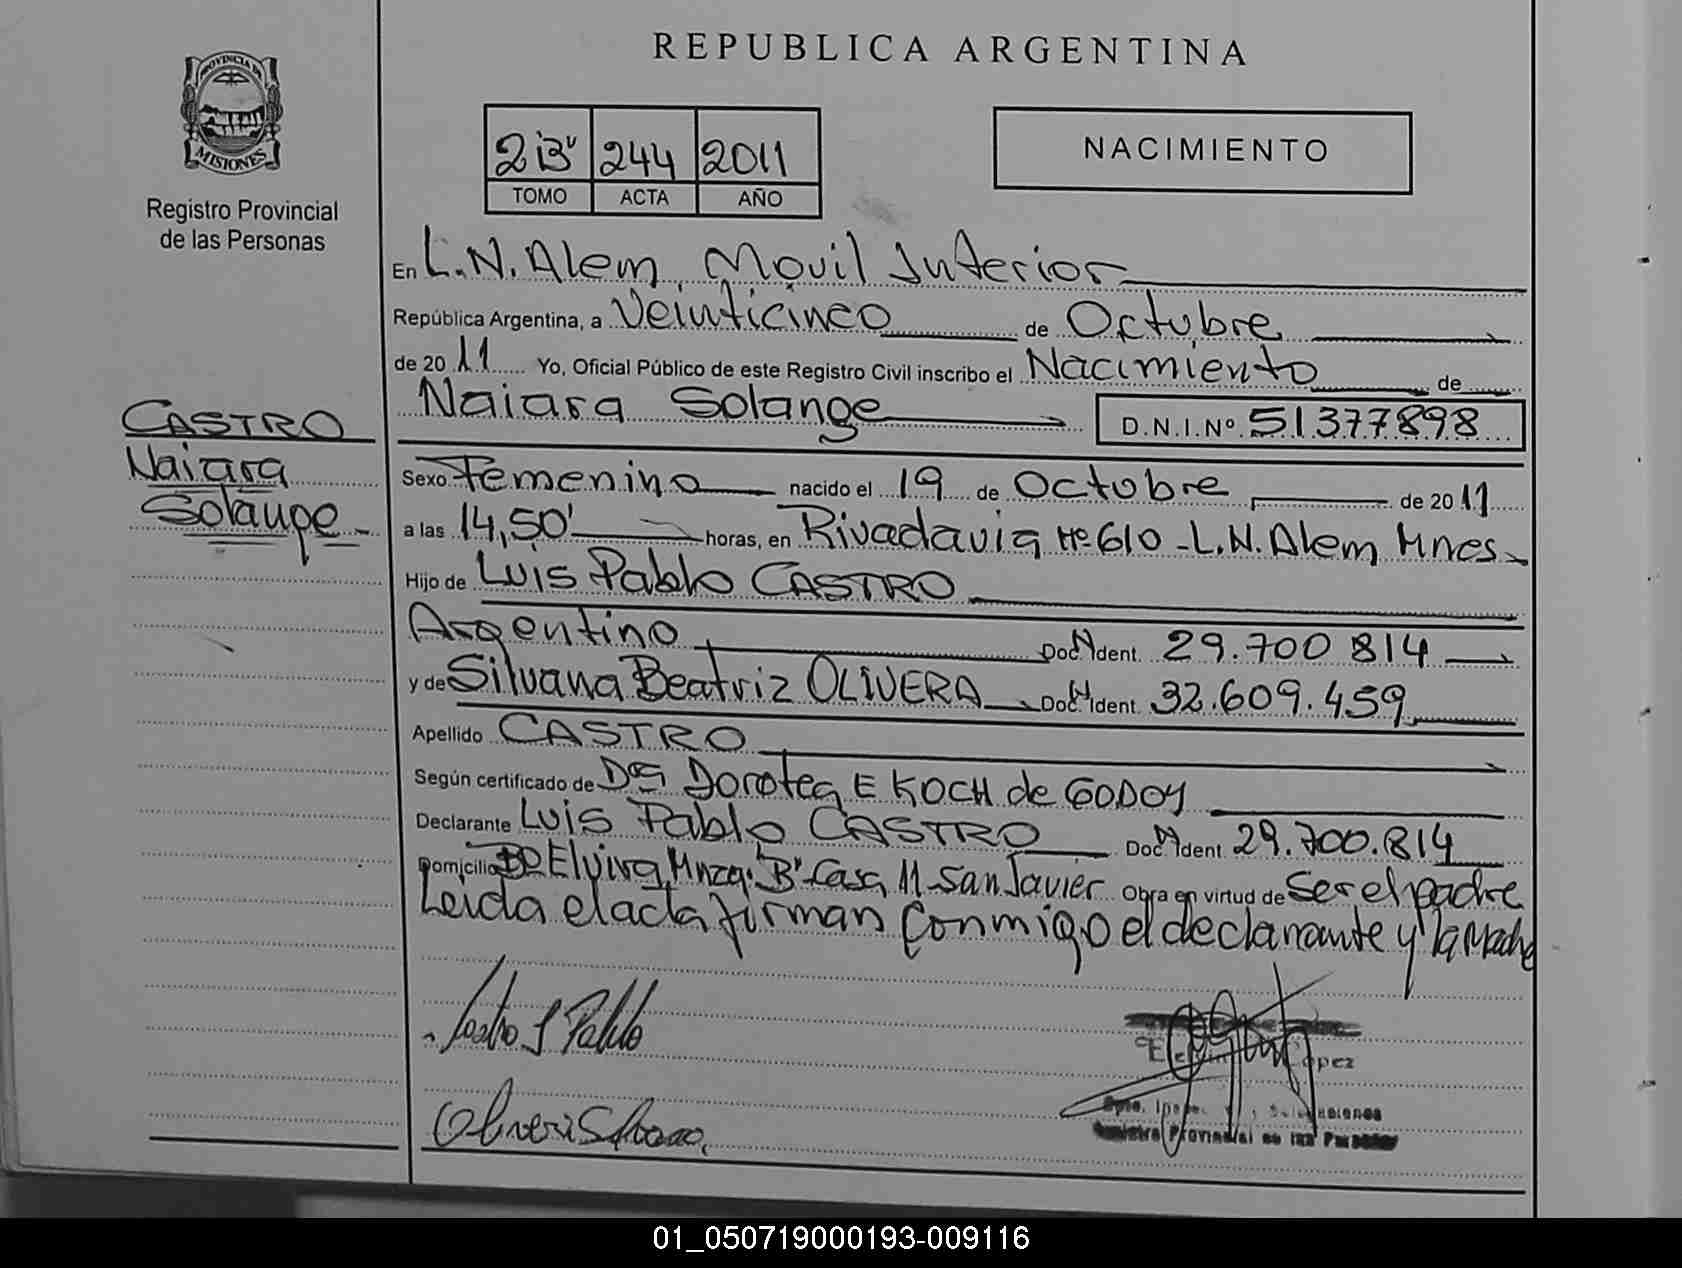 REPUBLICA ARGENTINA
PROVINCIA DE
MISIONES
Registro Provincial
de las Personas
244 2011
TOMO ACTA AÑO
NACIMIENTO
En L.N. Alem Movil Interior
República Argentina, a Veinticinco de Octubre
de 2011 Yo, Oficial Público de este Registro Civil inscribo el Nacimiento de
Naiara Solange D.N.I.Nº 51377898
CASTRO
Naiara
Solange
Sexo Femenino nacido el 19 de Octubre de 2011
a las 14,50' horas, en Rivadavia Nº 610 - L.N. Alem Mnes
Hijo de Luis Pablo CASTRO
Argentino Doc. Ident. 29.700 814
y de Silvana Beatriz OLIVERA Doc. Ident. 32.609.459
Apellido CASTRO
Según certificado de Dra Dorotea E KOCH de GODOY
Declarante Luis Pablo CASTRO Doc. Ident 29.700.814
Domicilio Bº Elvira Mnza. "B" Casa 11 San Javier Obra en virtud de Ser el padre
Leida el acta firman conmigo el declarante y la Madre
Castro L Pablo
Olivera Silvana
López
Registro Provincial de las Personas
01_050719000193-009116